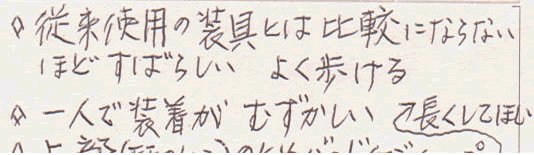 ◇ 従来使用の装具とは比較にならない
ほどすばらしい よく歩ける
◇ 一人で装着が むずかしい ↗長くしてほしい